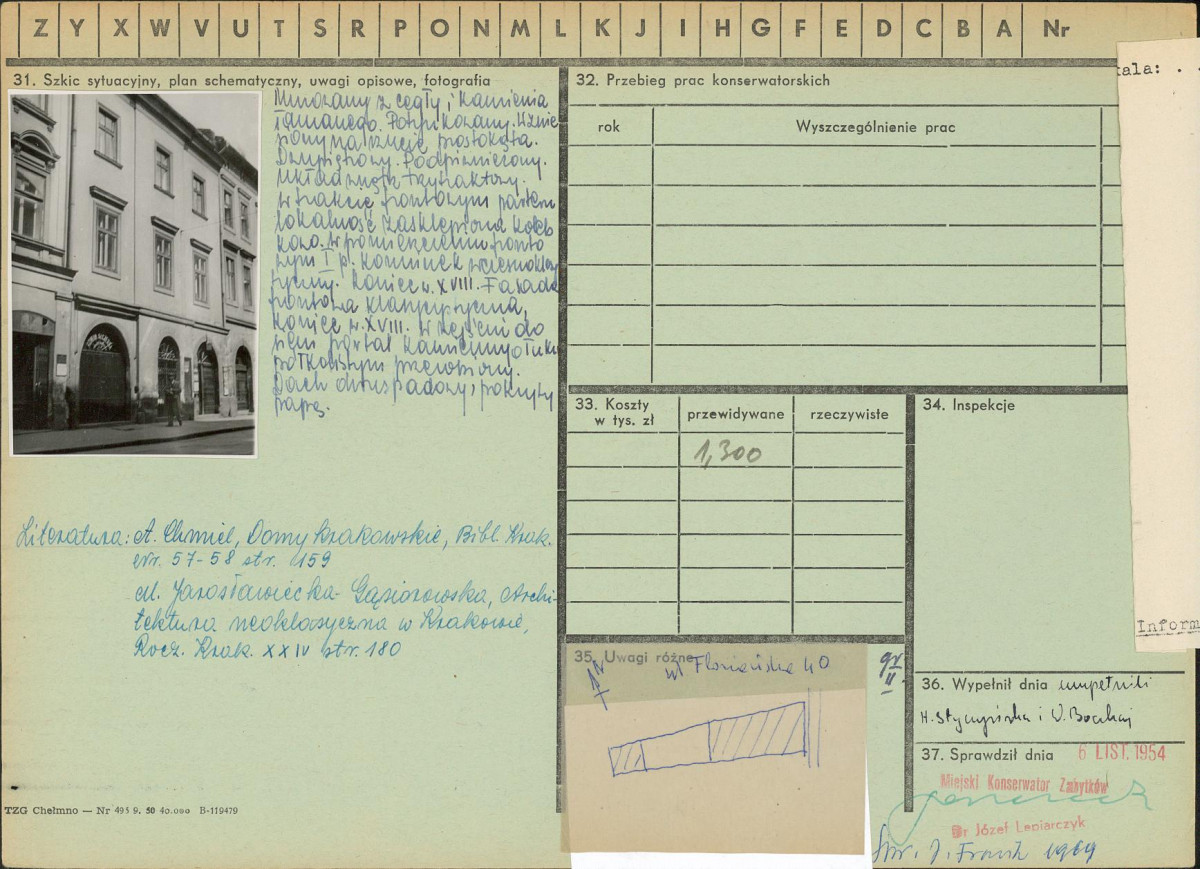 Z Y X W V U T S R P O N M L K J I H G F E D C B A Nr
31. Szkic sytuacyjny, plan schematyczny, uwagi opisowe, fotografia
Murowany z cegły i kamienia
łamanego. Potynkowany. Wznie
siony na rzucie prostokąta.
Dwupiętrowy. Podpiwniczony.
Układ wnętrz trzytraktowy.
W trakcie frontowym parteru
lokalność zasklepiona koleb
kowo. W pomieszczeniu fronto
wym I p. kominek wczesnoklasy
cystyczny. Koniec w. XVIII. Fasada
frontowa klasycystyczna,
koniec w. XVIII. W wejściu do
sieni portal kamienny o łuku
półkolistym przerobiony.
Dach dwuspadowy, pokryty
papą.
Literatura: A. Chmiel, Domy krakowskie, Bibl. Krak.
Nr. 57-58 str. 159
M. Jarosławiecka-Gąsiorowska, Archi-
tektura neoklasyczna w Krakowie,
Rocz. Krak. XXIV str. 180
TZG Chełmno — Nr 495 9. 50 40.000 B-119479
32. Przebieg prac konserwatorskich
rok Wyszczególnienie prac
33. Koszty
w tys. zł przewidywane rzeczywiste
1,300
34. Inspekcje
35. Uwagi różne
ul Floriańska 40
N
gr
II
36. Wypełnił dnia wypełnili
H. Styczyńska i
37. Sprawdził dnia 6 LIST. 1954
Miejski Konserwator Zabytków
Dr Józef Lepiarczyk
1969
kala: . .
Inform